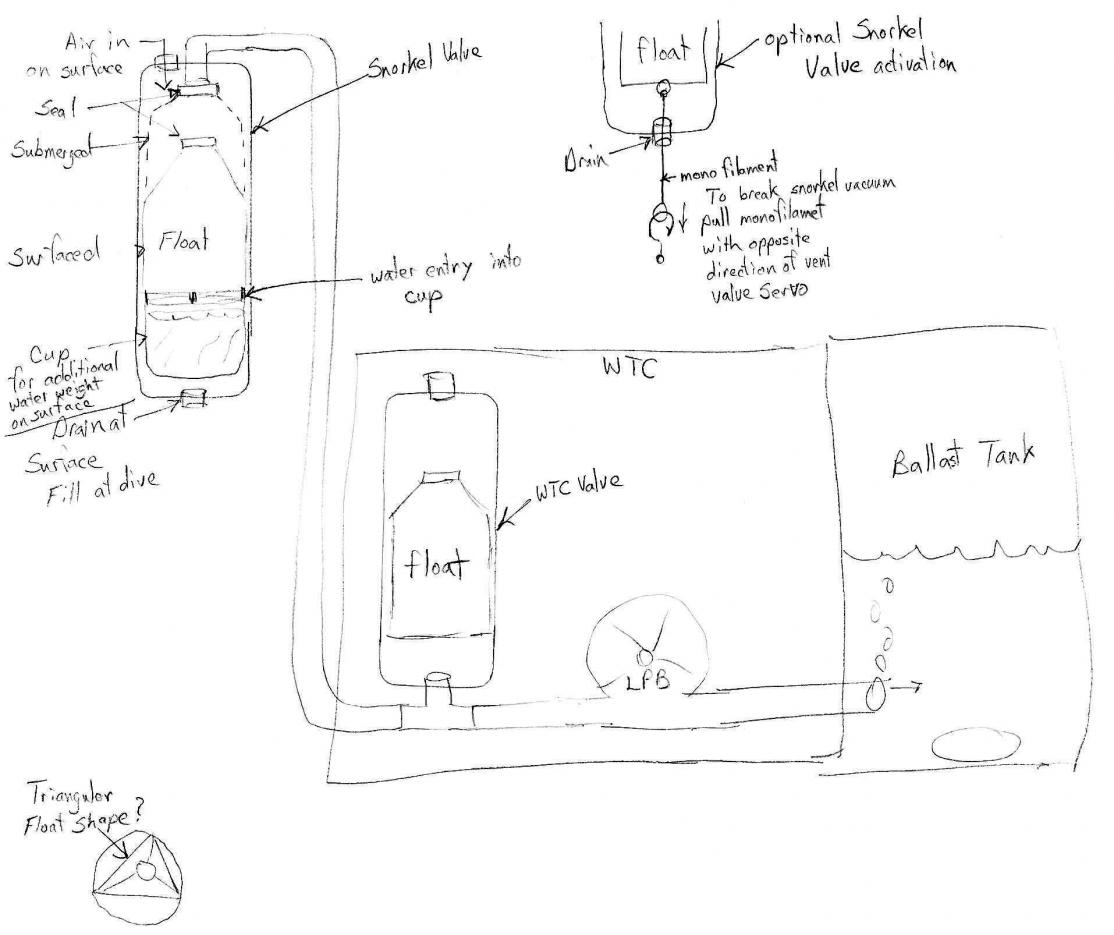 Air in
on surface
Seal
Submerged
Surfaced
Float
Snorkel Valve
water entry into
cup
Cup
for additional
water weight
on surface
Drain at
Surface
Fill at dive
float
optional Snorkel
Valve activation
Drain
mono filament
To break snorkel vacuum
pull monofilamet
with opposite
direction of vent
valve servo
WTC
WTC Valve
float
LPB
Ballast Tank
Triangular
Float Shape?